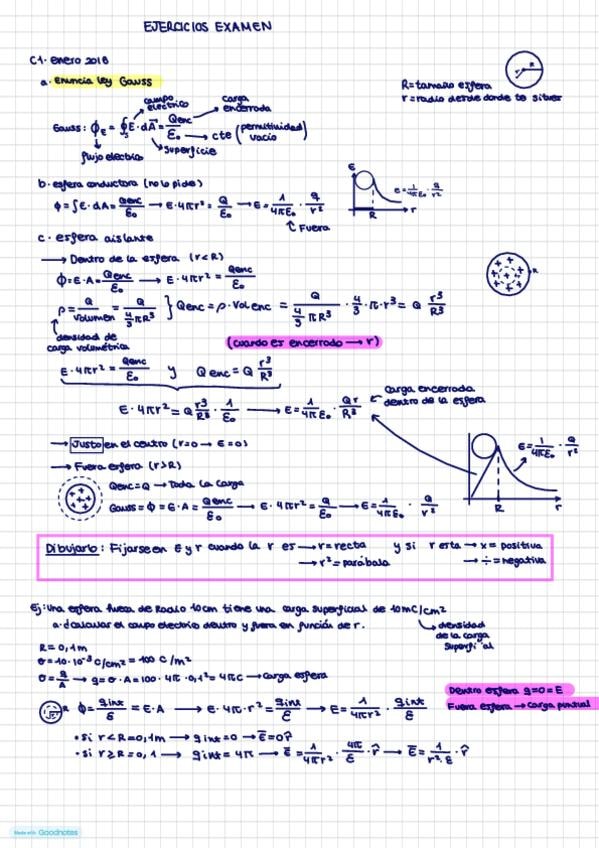 EJERCICIOS EXAMEN
C1. enero 2018
a. Enuncia ley Gauss
R=tamaño esfera
r=radio desde donde te situes
campo eléctrico
carga encerrada
Gauss: ϕE = ∮s E · dA = Qenc/εo → cte (permitividad vacio)
flujo electrico
superficie
b. esfera conductora (no lo pide)
ϕ = ∫E · dA = Qenc/εo → E · 4πr² = Q/εo → E = 1/4πεo · q/r²
Fuera
E
E = 1/4πεo · q/r²
R
r
c. esfera aislante
→ Dentro de la esfera (r<R)
ϕ = E · A = Qenc/εo → E · 4πr² = Qenc/εo
R
ρ = Q/volumen = Q/(4/3 πR³) } Qenc = ρ · Vol enc = Q/(4/3 πR³) · 4/3 · π · r³ = Q r³/R³
densidad de carga volumétrica
(cuando es encerrado → r)
E · 4πr² = Qenc/εo y Qenc = Q r³/R³
E · 4πr² = Q r³/R³ · 1/εo → E = 1/4πεo · Qr/R³
Carga encerrada dentro de la esfera
→ Justo en el centro (r=0 → E=0)
→ Fuera esfera (r>R)
E = 1/4πεo · Q/r²
R
r
Qenc=Q → Toda la carga
Gauss = ϕ = E · A = Qenc/εo → E · 4πr² = Q/εo → E = 1/4πεo · Q/r²
Dibujarlo: Fijarse en E y r cuando la r es → r = recta y si r esta → x = positiva
→ r² = parábola → ÷ = negativa
Ej: una esfera hueca de Radio 10cm tiene una carga superficial de 10mC/cm²
a. calcular el campo electrico dentro y fuera en función de r.
densidad de la carga
R = 0,1m
σ = 10 · 10⁻³ C/cm² = 100 C/m²
σ = q/A → q = σ · A = 100 · 4π · 0,1² = 4πC → carga esfera
Dentro esfera q=0=E
Fuera esfera → carga puntual
R ϕ = qint/ε = E · A → E · 4π · r² = qint/ε → E = 1/4πr² · qint/ε
• si r < R=0,1m → qint=0 → E=0r̂
• si r ≥ R=0,1 → qint = 4π → E = 1/4πr² · 4π/ε · r̂ → E = 1/r²·ε · r̂
Made with Goodnotes